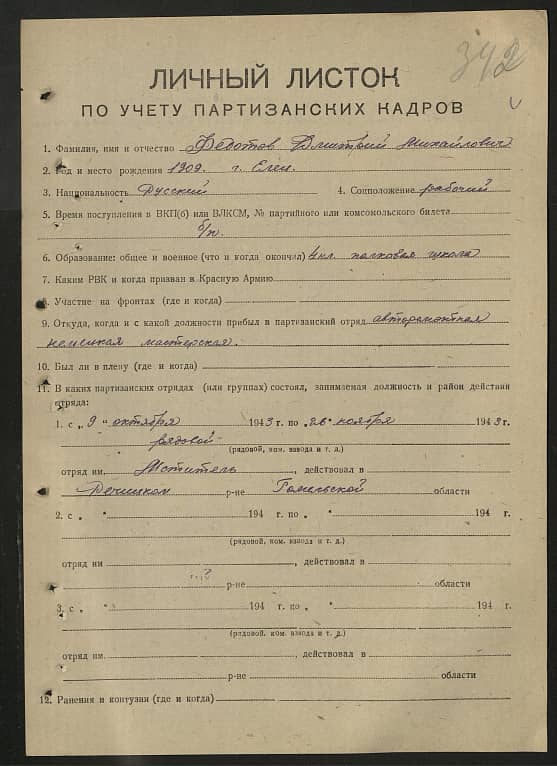 342
ЛИЧНЫЙ ЛИСТОК
ПО УЧЕТУ ПАРТИЗАНСКИХ КАДРОВ
1. Фамилия, имя и отчество Федотов Дмитрий Михайлович
2. Год и место рождения 1909. г. Елец.
3. Национальность Русский 4. Соцположение рабочий
5. Время поступления в ВКП(б) или ВЛКСМ, № партийного или комсомольского билета
б/п.
6. Образование: общее и военное (что и когда окончил) 4 кл. полковая школа
7. Каким РВК и когда призван в Красную Армию
8. Участие на фронтах (где и когда)
9. Откуда, когда и с какой должности прибыл в партизанский отряд авторемонтная
немецкая мастерская.
10. Был ли в плену (где и когда)
11. В каких партизанских отрядах (или группах) состоял, занимаемая должность и район действия
отряда:
1. с „9 " октября 1943 г. по „26 " ноября 1943 г.
рядовой
(рядовой, ком. взвода и т. д.)
отряд им. Мститель, действовал в
Речицком р-не Гомельской области
2. с „ " 194 г. по „ " 194 г.
(рядовой, ком. взвода и т. д.)
отряд им , действовал в
р-не области
3. с „ " 194 г. по „ " 194 г.
(рядовой, ком. взвода и т. д.)
отряд им. , действовал в
р-не области
12. Ранения и контузии (где и когда)